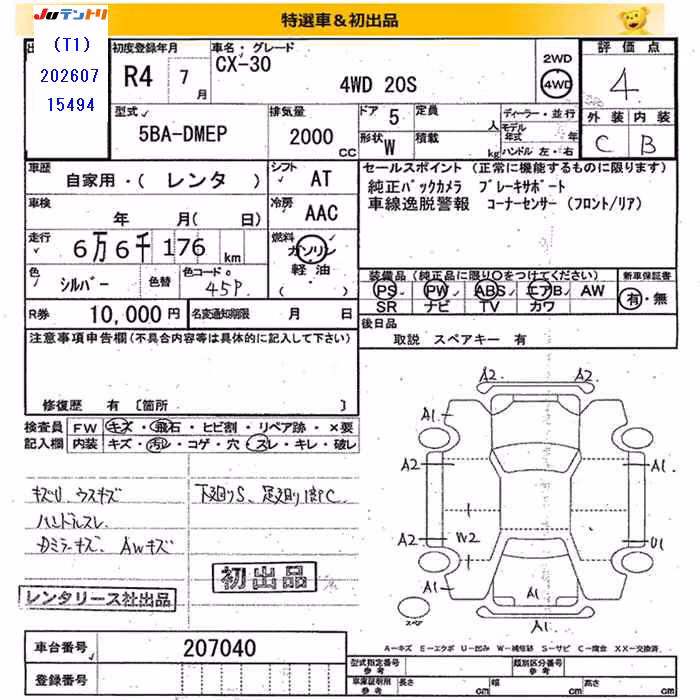 JUテントリ
特選車&初出品
(T1)
202607
15494
初度登録年月
R4 7月
車名・グレード
CX-30
4WD 20S
2WD
4WD
評価点
4
外装 内装
C B
型式
5BA-DMEP
排気量
2000 CC
ドア 5
定員 人
形状 W
積載 kg
ディーラー・並行
モデル年式 年
ハンドル 左・右
車歴
自家用・( レンタ )
シフト AT
車検
年 月( 日)
冷房 AAC
走行
6万6千176 km
燃料
ガソリン
軽油
色 シルバー
色替
色コード 45P
セールスポイント (正常に機能するものに限ります)
純正バックカメラ ブレーキサポート
車線逸脱警報 コーナーセンサー (フロント/リア)
装備品 (純正品に限り○をつけてください)
新車保証書
PS PW ABS エアB AW
SR ナビ TV カワ
有・無
R券 10,000 円
名変通知期限 月 日
後日品
取説 スペアキー 有
注意事項申告欄(不具合内容等は具体的に記入して下さい)
修復歴 有 〔箇所 〕
検査員 FW キズ・飛石・ヒビ割・リペア跡・×要
記入欄 内装 キズ・汚レ・コゲ・穴・スレ・キレ・破レ
キズU ウスキズ
ハンドルスレ
Dミラーキズ、AWキズ
下廻りS、足廻り1部C
初出品
レンタリース社出品
A2 A2
A1
A2 A1
A2 W2 U1
A1 A1
A1
スペア
A-キズ E-エクボ U-凹み W-補修跡 S-サビ C-腐食 XX-交換済
車台番号 207040
登録番号
型式指定番号 参考
類別区分番号 参考
車庫証明用 参考 長さ cm 幅 cm 高さ cm